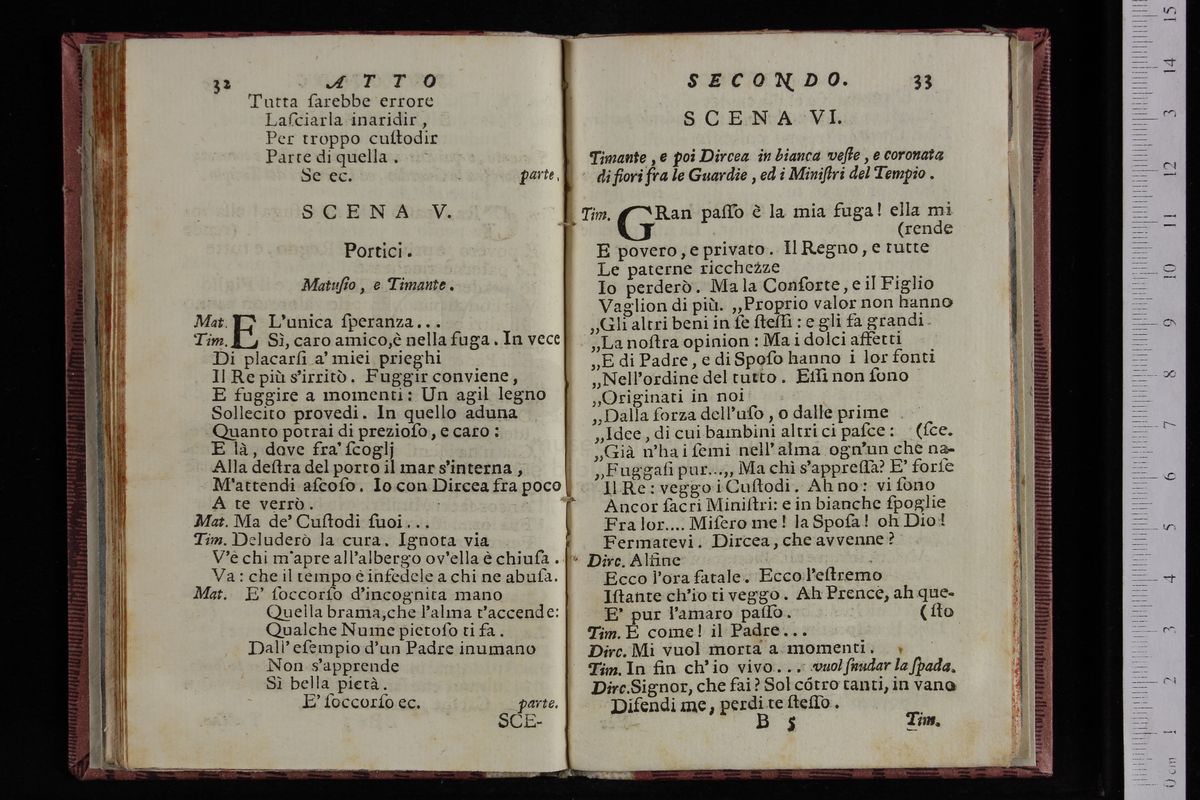 32 ATTO
Tutta ſarebbe errore
Laſciarla inaridir,
Per troppo cuſtodir
Parte di quella.
Se ec. parte.
SCENA V.
Portici.
Matuſio, e Timante.
Mat. E L'unica ſperanza...
Tim. Sì, caro amico,è nella fuga. In vece
Di placarſi a' miei prieghi
Il Re più s'irritò. Fuggir conviene,
E fuggire a momenti: Un agil legno
Sollecito provedi. In quello aduna
Quanto potrai di prezioſo, e caro:
E là, dove fra' ſcoglj
Alla deſtra del porto il mar s'interna,
M'attendi aſcoſo. Io con Dircea fra poco
A te verrò.
Mat. Ma de' Cuſtodi ſuoi...
Tim. Deluderò la cura. Ignota via
V'è chi m'apre all'albergo ov'ella è chiuſa.
Va: che il tempo è infedele a chi ne abuſa.
Mat. E' ſoccorſo d'incognita mano
Quella brama,che l'alma t'accende:
Qualche Nume pietoſo ti fa.
Dall' eſempio d'un Padre inumano
Non s'apprende
Sì bella pietà.
E' ſoccorſo ec. parte.
SCE-
SECONDO. 33
SCENA VI.
Timante, e poi Dircea in bianca veſte, e coronata
di fiori fra le Guardie, ed i Miniſtri del Tempio.
Tim. GRan paſſo è la mia fuga! ella mi
(rende
E povero, e privato. Il Regno, e tutte
Le paterne ricchezze
Io perderò. Ma la Conſorte, e il Figlio
Vaglion di più. „Proprio valor non hanno
„Gli altri beni in ſe ſteſſi: e gli fa grandi
„La noſtra opinion: Ma i dolci affetti
„E di Padre, e di Spoſo hanno i lor fonti
„Nell'ordine del tutto. Eſſi non ſono
„Originati in noi
„Dalla forza dell'uſo, o dalle prime
„Idee, di cui bambini altri ci paſce: (ſce.
„Già n'ha i ſemi nell' alma ogn'un che na-
„Fuggaſi pur...„ Ma chi s'appreſſa? E' forſe
Il Re: veggo i Cuſtodi. Ah no: vi ſono
Ancor ſacri Miniſtri: e in bianche ſpoglie
Fra lor.... Miſero me! la Spoſa! oh Dio!
Fermatevi. Dircea, che avvenne?
Dirc. Alfine
Ecco l'ora fatale. Ecco l'eſtremo
Iſtante ch'io ti veggo. Ah Prence, ah que-
E' pur l'amaro paſſo. (ſto
Tim. E come! il Padre...
Dirc. Mi vuol morta a momenti.
Tim. In fin ch' io vivo... vuol ſnudar la ſpada.
Dirc.Signor, che fai? Sol cõtro tanti, in vano
Difendi me, perdi te ſteſſo.
B 5 Tim.
15
14
13
12
11
10
9
8
7
6
5
4
3
2
1
0 cm